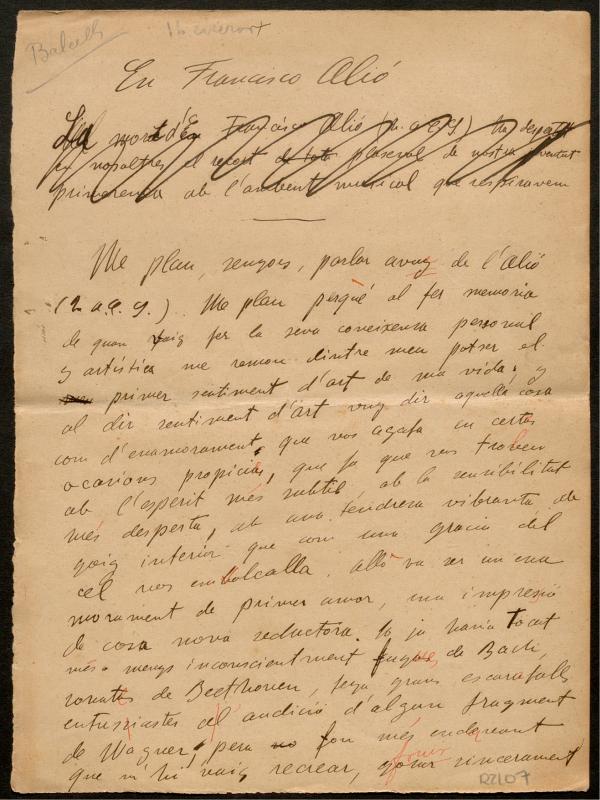 Balcells
En Francisco Alió
La mort d'En Francisco Alió (q. a. e. g.) ha despertat
en nosaltres el recort de tota plascual de nostra joventut
primerenca ab l'ambent musical que respiravem
Me plau, senyors, parlar avuy de l'Alió
(q. a. e. g.) Me plau perquè al fer memoria
de quan vaig fer la seva coneixensa personal
y artística me ramou dintre meu potser el
primer sentiment d'art de ma vida; y
al dir sentiment d'art vuy dir aquella cosa
com d'enamorament, que vos agafa en certas
ocasions propicias, que fa que vos trobeu
ab l'esperit més subtil ab la sensibilitat
més desperta, ab una tendresa vibranta de
goig interior que com una gracia del
cel vos embolcalla. Allò va ser un ena
morament de primer amor, una impresió
de cosa nova seductora. Jo ja havia tocat
més o menys inconscientment fugues de Bach,
sonates de Beethoven, feya grans escarafalls
entusiastes al audició d'algun fragment
de Wagner, pero no fou més endavant
que m'hi vaig recrear, gosar sincerament